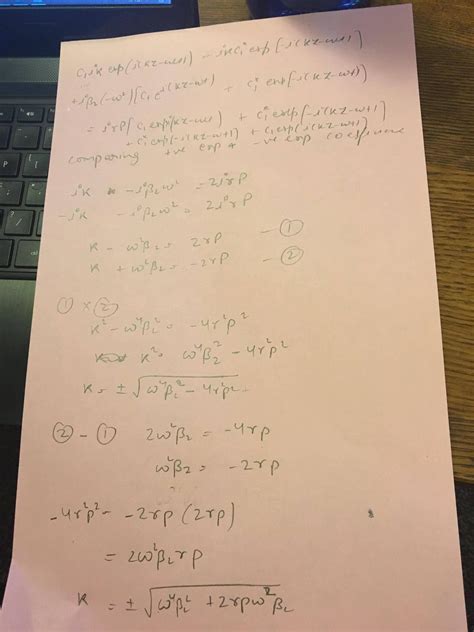 C₁ iK exp(i(Kz-ωt)) - iKC₁* exp[-i(Kz-ωt)]
+ iβ₂(-ω²)[C₁ e^i(Kz-ωt) + C₁* exp[-i(Kz-ωt)]
= irP[C₁ exp i(Kz-ωt) + C₁* exp[-i(Kz-ωt)]
+ C₁* exp[-i(Kz-ωt)] + C₁ exp(i(Kz-ωt))
comparing +ve exp & -ve exp
iK - iβ₂ω² = 2irP
-iK - iβ₂ω² = 2irP
K - ω²β₂ = 2rP — ①
K + ω²β₂ = -2rP — ②
① × ②
K² - ω⁴β₂² = -4r²P²
K² = ω⁴β₂² - 4r²P²
K = ± √(ω⁴β₂² - 4r²P²)
② - ① 2ω²β₂ = -4rP
ω²β₂ = -2rP
-4r²P² = -2rP (2rP)
= 2ω²β₂rP
K = ± √(ω⁴β₂² + 2rPω²β₂)